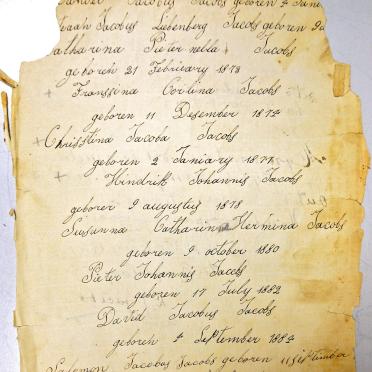 Jacobus Jacobs geboren 4 Juni
Jacobus Lubenberg Jacobs geboren
Catharina Pieternella Jacobs
geboren 21 Februeary 1873
+ Franssina Corlina Jacobs
geboren 11 Desember 1874
+ Christina Jacoba Jacobs
geboren 2 Janiary 1877
+ Hindrik Johannis Jacobs
geboren 9 augustus 1878
Susunna Catharina Hermina Jacobs
geboren 9 october 1880
Pieter Johannis Jacobs
geboren 17 July 1882
David Jacobus Jacobs
geboren 4 September 1884
Salomon Jacobus Jacobs geboren 11 September